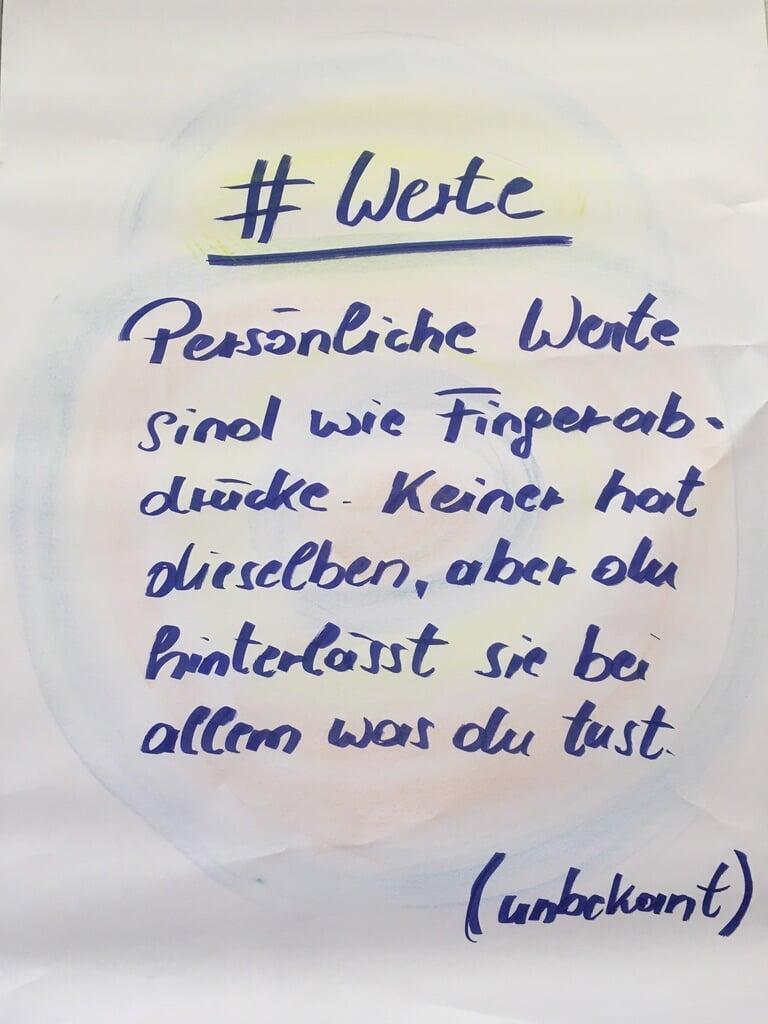 # Werte
Persönliche Werte
sind wie Fingerab-
drücke. Keiner hat
dieselben, aber du
hinterlässt sie bei
allem was du tust.
(unbekannt)